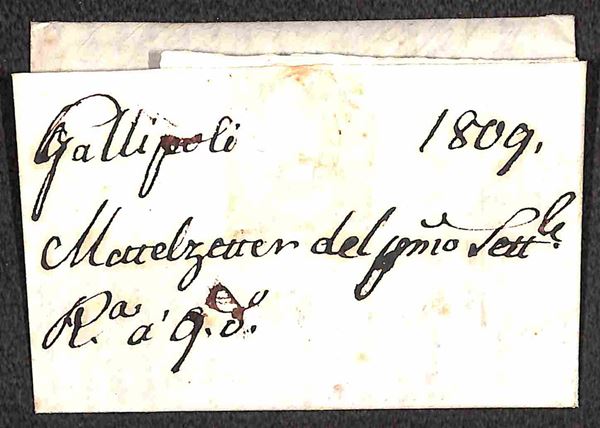 Gallipoli 1809.
Mattelzetter del pmo Sett.le
R.a a' 9. d.o